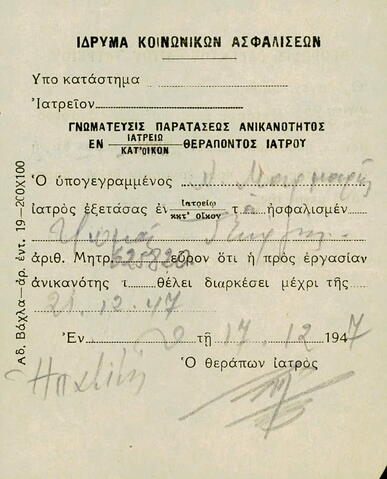 ΙΔΡΥΜΑ ΚΟΙΝΩΝΙΚΩΝ ΑΣΦΑΛΙΣΕΩΝ
Υπο κατάστημα
Ἰατρεῖον
ΓΝΩΜΑΤΕΥΣΙΣ ΠΑΡΑΤΑΣΕΩΣ ΑΝΙΚΑΝΟΤΗΤΟΣ
ΕΝ ΙΑΤΡΕΙΩ ΚΑΤ'ΟΙΚΟΝ ΘΕΡΑΠΟΝΤΟΣ ΙΑΤΡΟΥ
Ὁ ὑπογεγραμμένος
ἰατρὸς ἐξετάσας ἐν ἰατρείῳ κατ' οἶκον τ ἠσφαλισμέν
ἀριθ. Μητρ. 625820 εὗρον ὅτι ἡ πρὸς ἐργασίαν
ἀνικανότης τ θέλει διαρκέσει μέχρι τῆς
21.12.47
Ἐν τῇ 17.12 1947
Ὁ θεράπων ἰατρὸς
Αδ. Βάχλα—ἀρ. ἐντ. 19—200Χ100